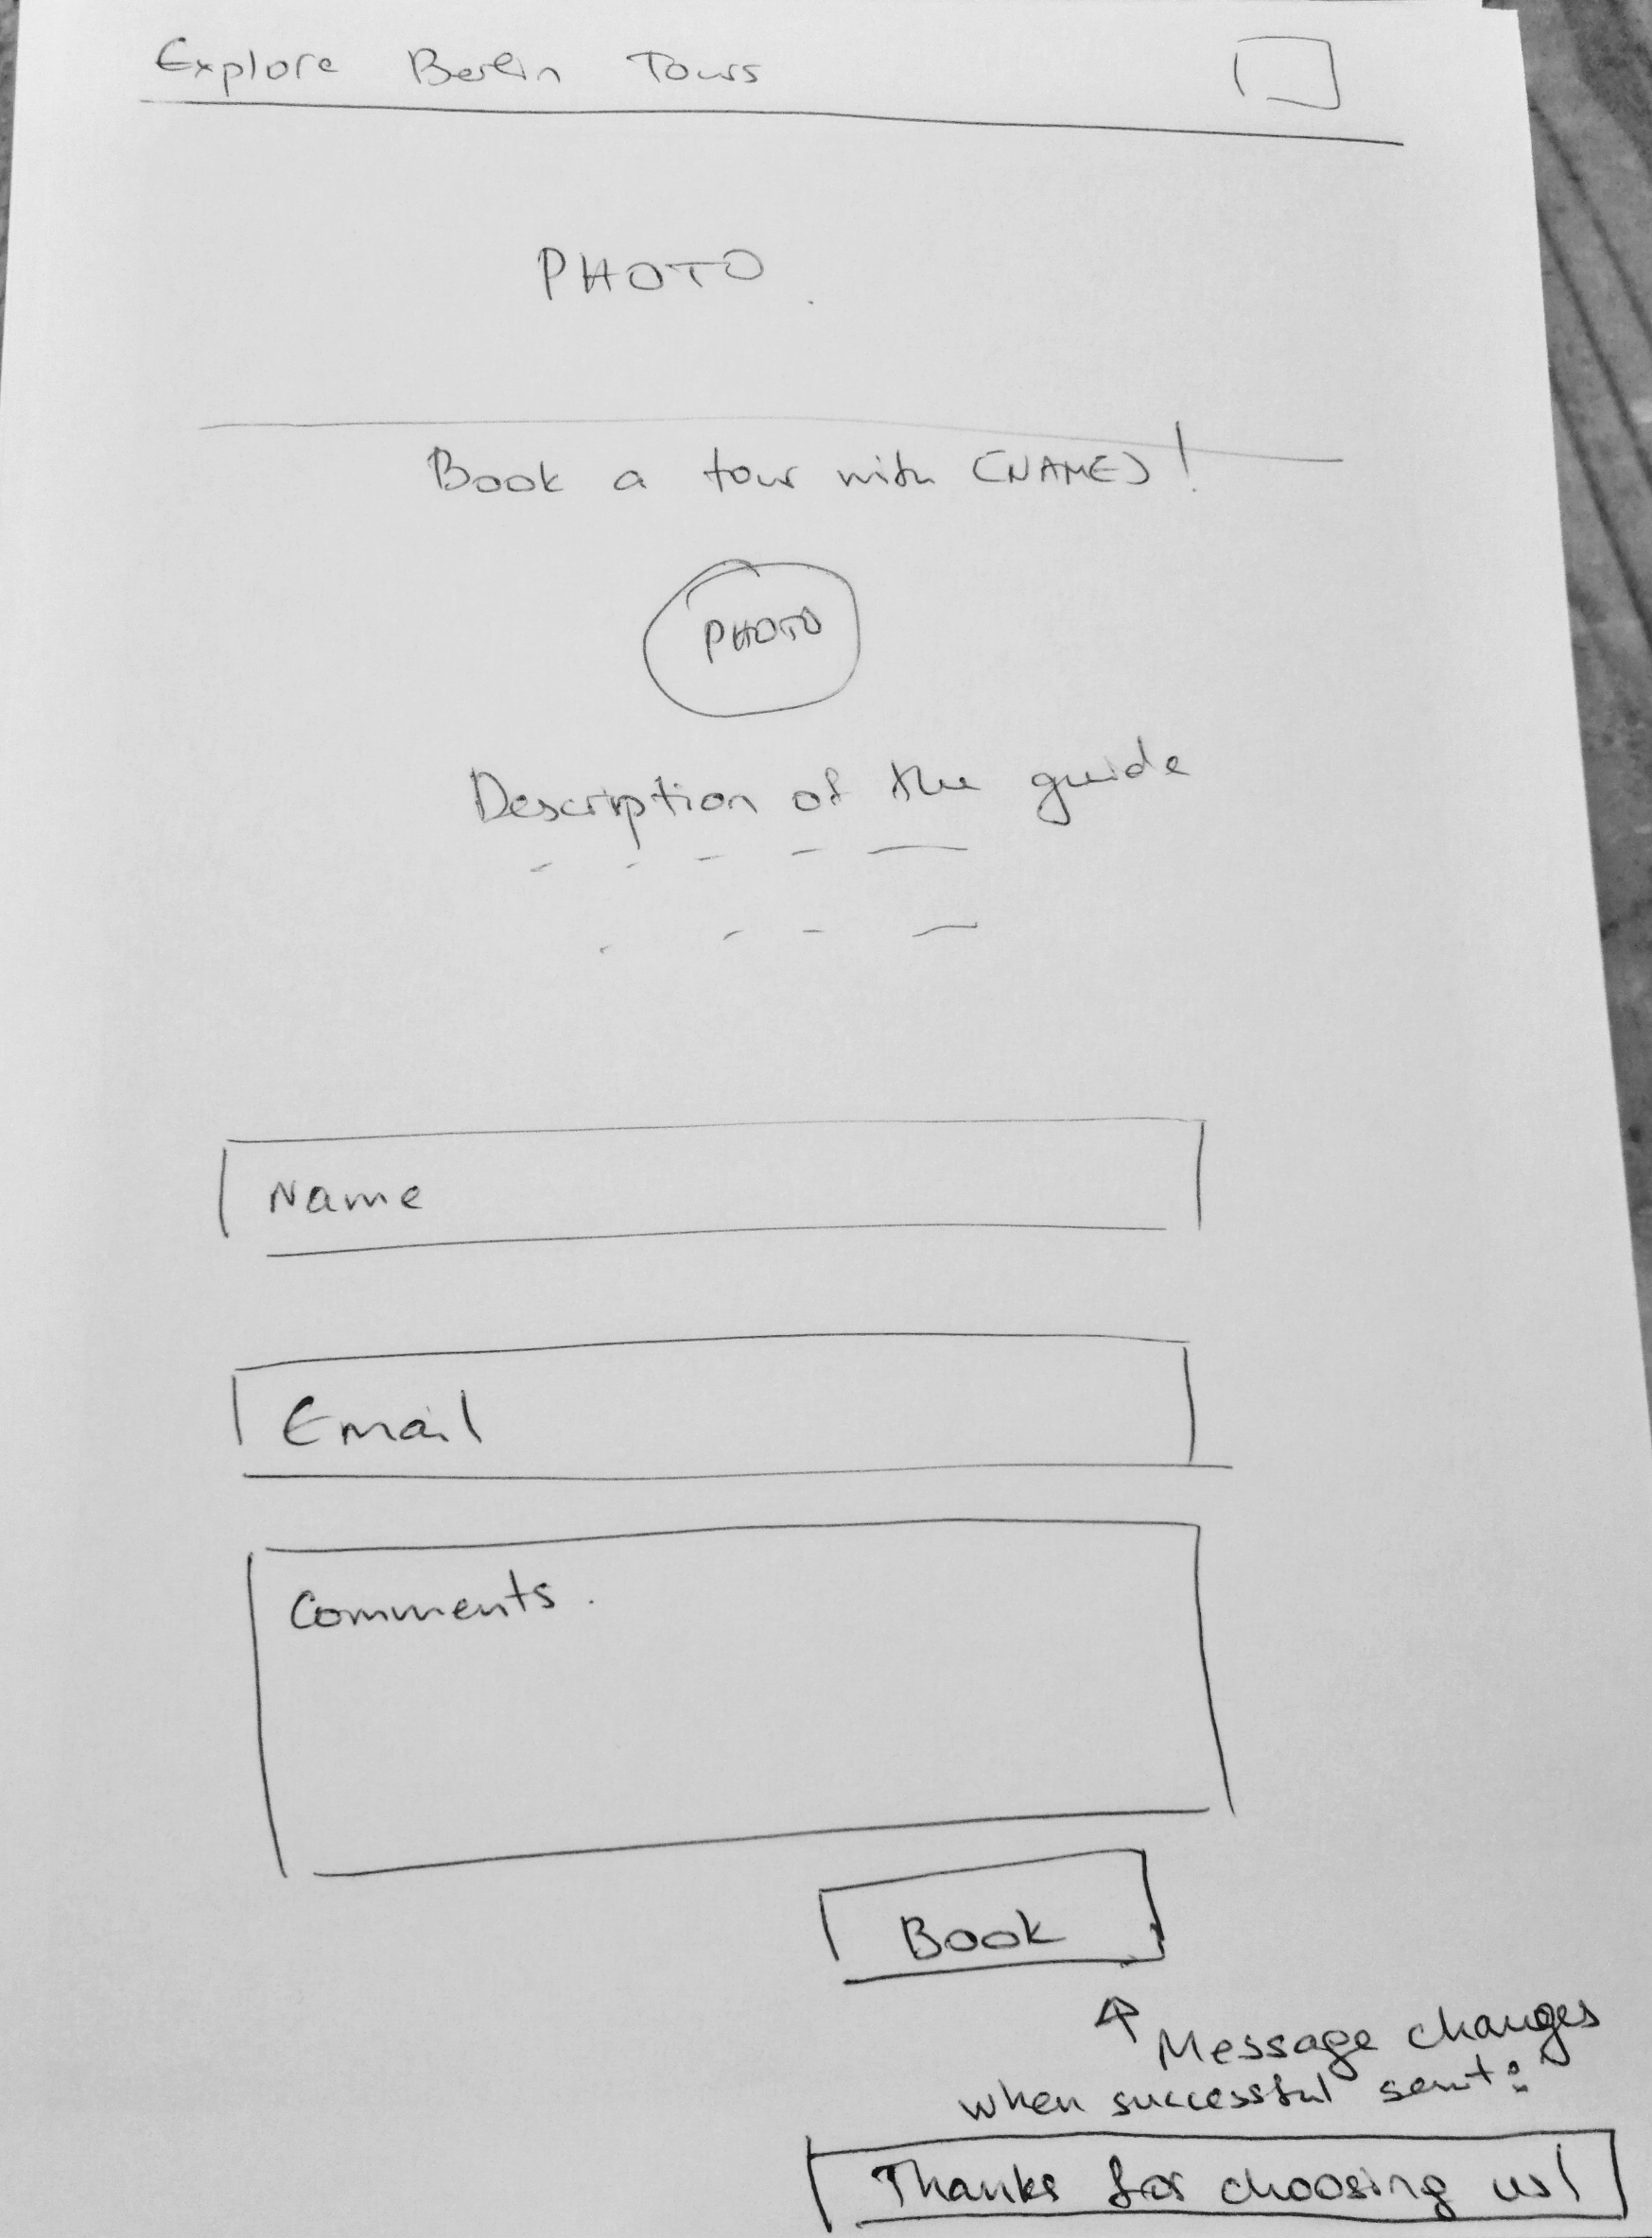 Explore Berlin Tours
PHOTO
Book a tour with (NAME)!
PHOTO
Description of the guide
Name
Email
Comments.
Book
Message changes
when successful sent:
Thanks for choosing us!